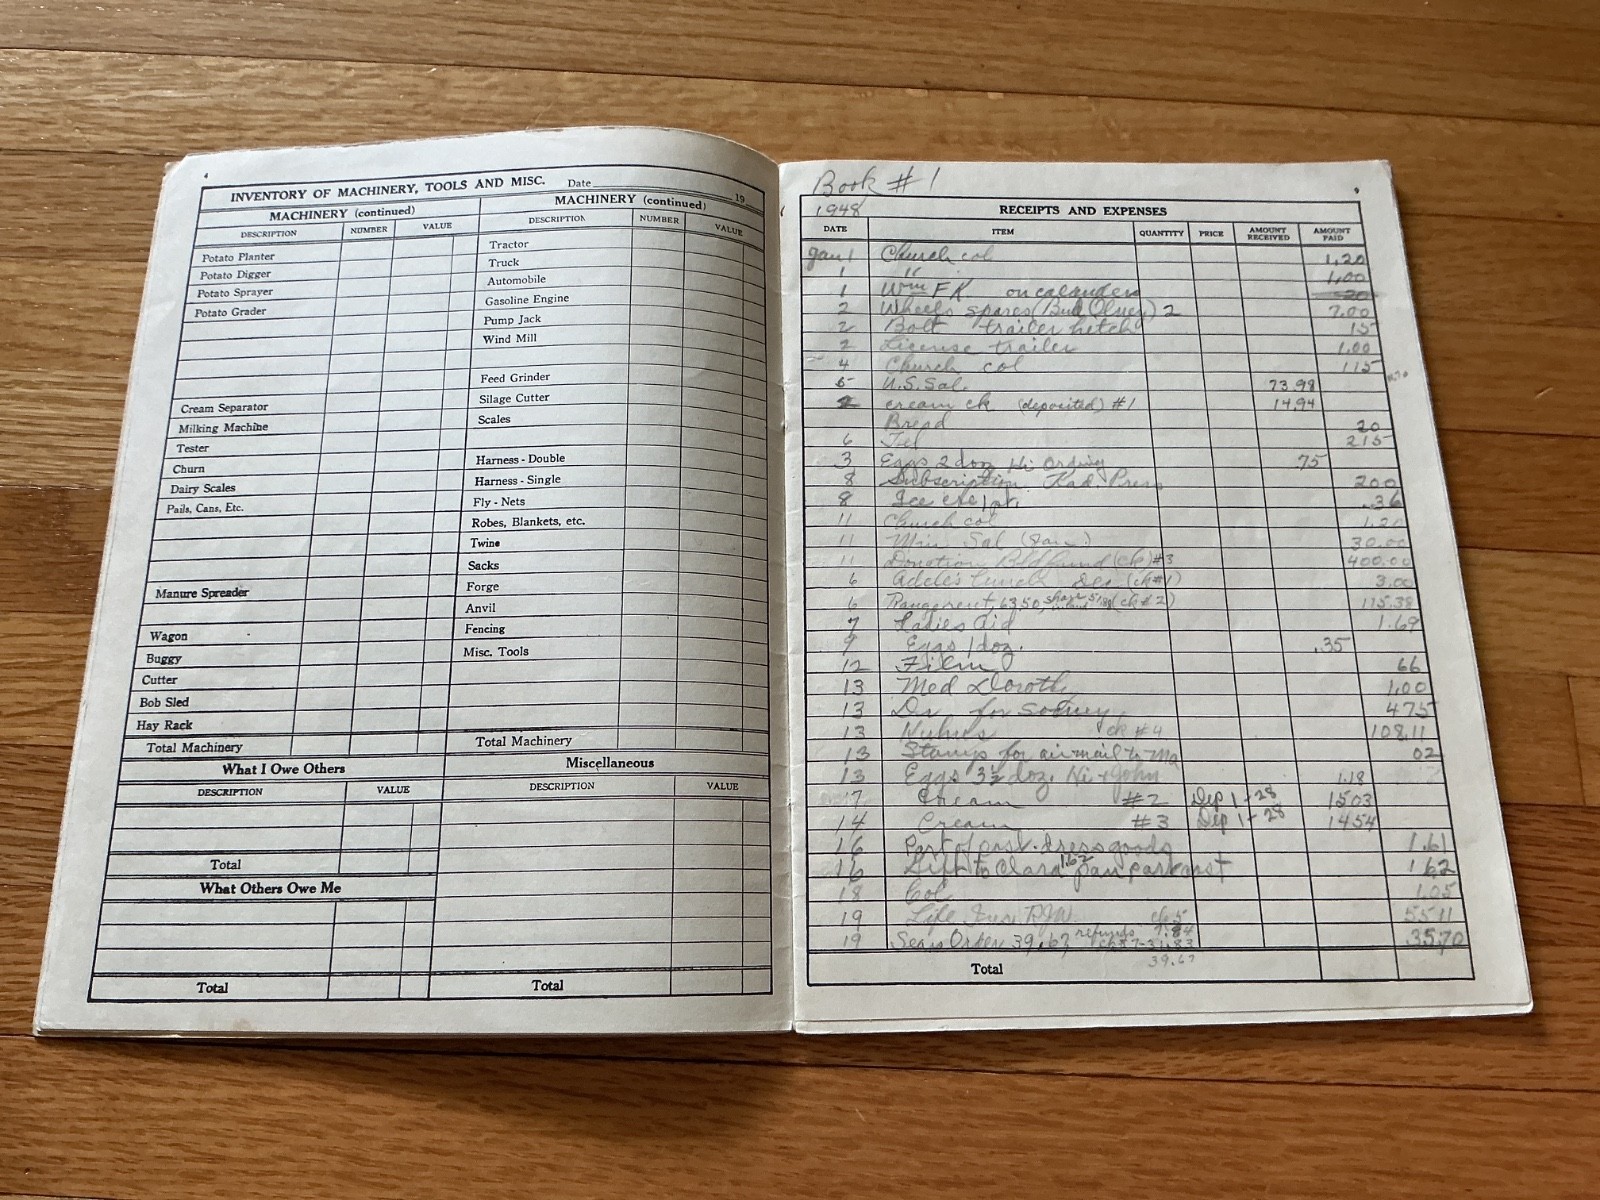 4
INVENTORY OF MACHINERY, TOOLS AND MISC. Date 19
MACHINERY (continued)
DESCRIPTION NUMBER VALUE
Potato Planter
Potato Digger
Potato Sprayer
Potato Grader
Cream Separator
Milking Machine
Tester
Churn
Dairy Scales
Pails, Cans, Etc.
Manure Spreader
Wagon
Buggy
Cutter
Bob Sled
Hay Rack
Total Machinery
What I Owe Others
DESCRIPTION VALUE
Total
What Others Owe Me
Total
MACHINERY (continued)
DESCRIPTION NUMBER VALUE
Tractor
Truck
Automobile
Gasoline Engine
Pump Jack
Wind Mill
Feed Grinder
Silage Cutter
Scales
Harness - Double
Harness - Single
Fly - Nets
Robes, Blankets, etc.
Twine
Sacks
Forge
Anvil
Fencing
Misc. Tools
Total Machinery
Miscellaneous
DESCRIPTION VALUE
Total
Book #1
1948 RECEIPTS AND EXPENSES
DATE ITEM QUANTITY PRICE AMOUNT RECEIVED AMOUNT PAID
Jan 1 Church col 1.20
1 " 1.00
1 Wm F K on calanders 20
2 Wheels spares (Bud Olney) 2 7.00
2 Bolt trailer hetch 15
2 License trailer 1.00
4 Church col 1 15
5 U.S. Sal. 73.98
cream ck (deposited) #1 14.94
Bread 20
6 Tel 2 15
3 Eggs 2 doz Hi Ording .75
8 Subscription Kad. Press 2 00
8 Ice cre 1 pt. .36
11 Church col 1.20
11 Min Sal (Jan) 30.00
11 Donation Bld fund (ck) #3 400.00
6 Adele's lunch Dec (ck #1) 3.00
6 63.50 (ck #2) 115.38
7 Ladies Aid 1.69
9 Eggs 1 doz. .35
12 Film 66
13 Med Doroth 1.00
13 Dr for 4 75
13 ck #4 108.11
13 Stamps for air mail to Ma 02
13 Eggs 3½ doz. Hi + John 1.18
7 Cream #2 Dep 1-28 15 03
14 Cream #3 Dep 1-28 14 54
16 Part of cost dress goods 1.61
16 Gift to Clara 1.62 Jan part cost 1 62
18 Col 1.05
19 Life Ins. ck 5 55 11
19 Sears Order 39.67 refunds 35.70
Total 39.67